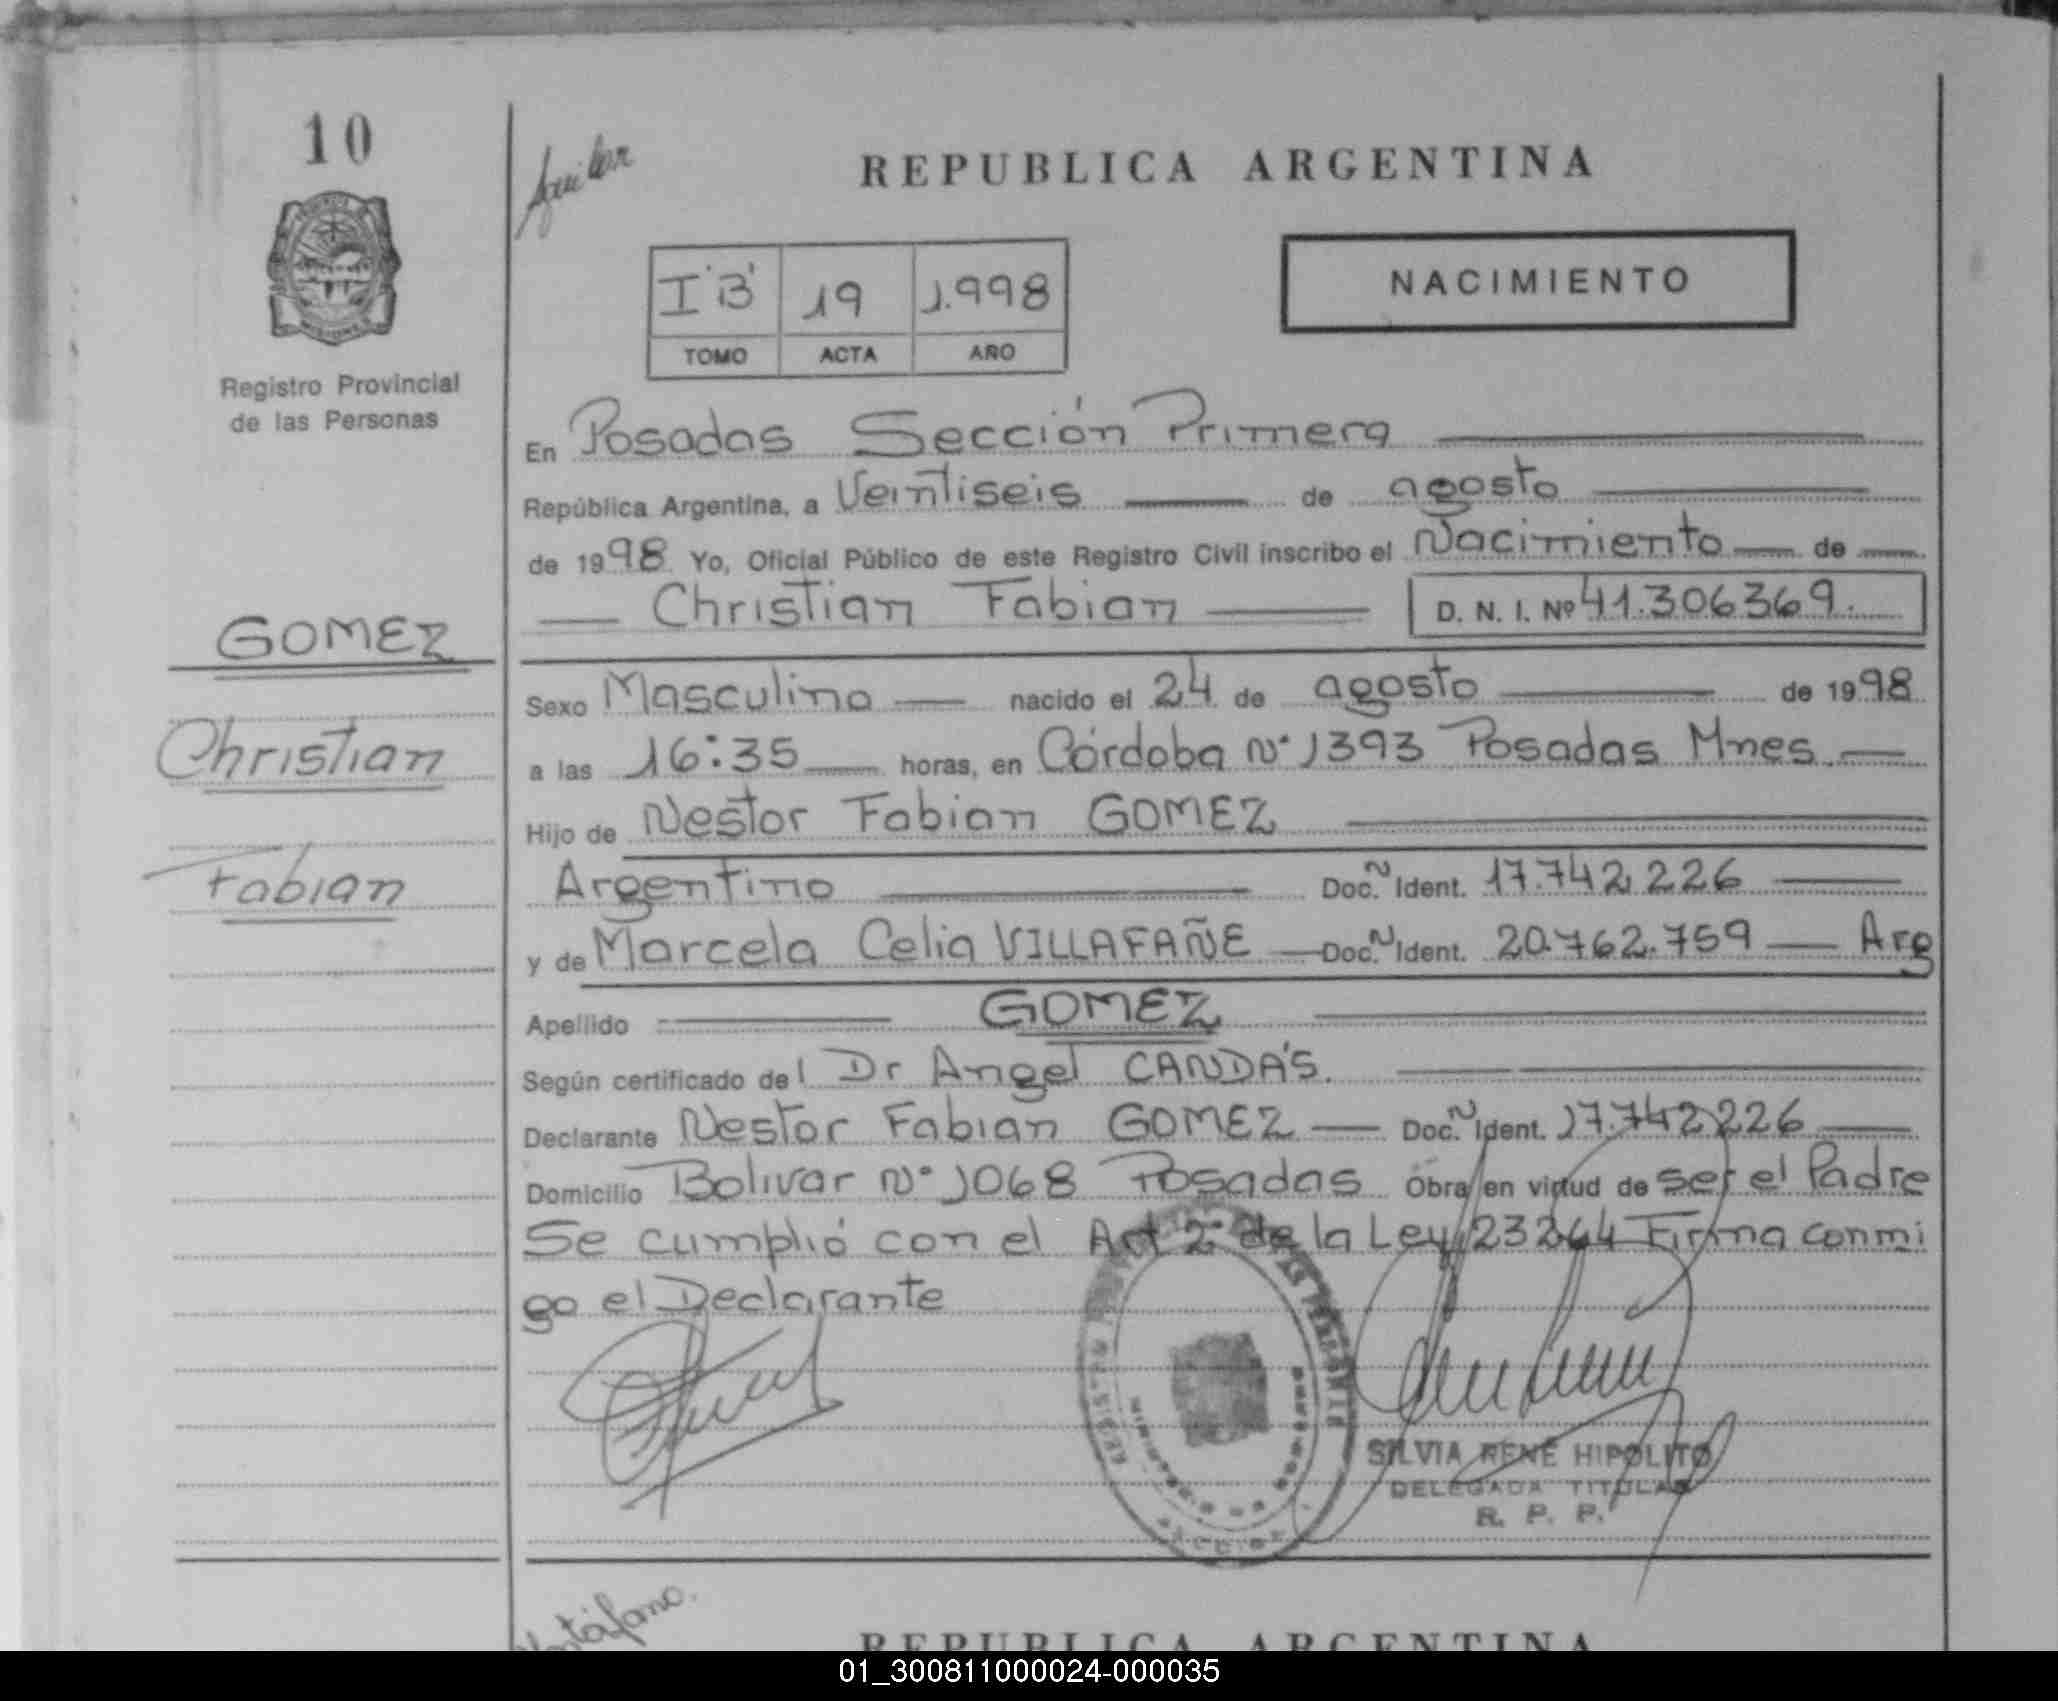 10
Aguilar
REPUBLICA ARGENTINA
NACIMIENTO
I "B" 19 1.998
TOMO ACTA AÑO
Registro Provincial
de las Personas
En Posadas Sección Primera
República Argentina, a Veintiseis de agosto
de 1998 Yo, Oficial Público de este Registro Civil inscribo el Nacimiento de
Christian Fabian D. N. I. Nº 41.306369.
GOMEZ
Christian
Fabian
Sexo Masculino nacido el 24 de agosto de 1998
a las 16:35 horas, en Córdoba Nº 1393 Posadas Mnes.
Hijo de Nestor Fabian GOMEZ
Argentino Doc. Ñ Ident. 17.742.226
y de Marcela Celia VILLAFAÑE Doc. Ñ Ident. 20.762.759 Arg
Apellido GOMEZ
Según certificado del Dr Angel CANDA'S.
Declarante Nestor Fabian GOMEZ Doc. Ñ Ident. 17.742226
Domicilio Bolivar Nº 1068 Posadas Obra en virtud de ser el Padre
Se cumplió con el Art 2º de la Ley 23264 Firma conmi
go el Declarante
SILVIA RENÉ HIPOLITO
DELEGADA TITULAR
R. P. P.
REPUBLICA ARGENTINA
01_300811000024-000035